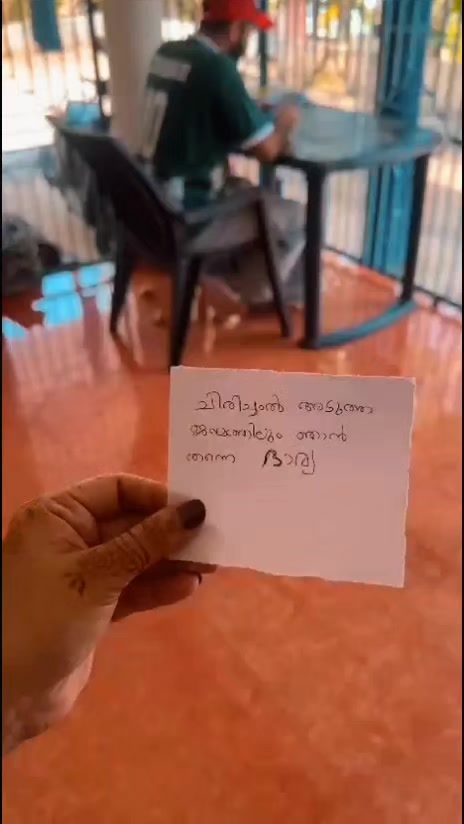 ചിരിച്ചാൽ അടുത്ത
ജന്മത്തിലും ഞാൻ
തന്നെ ഭാര്യ